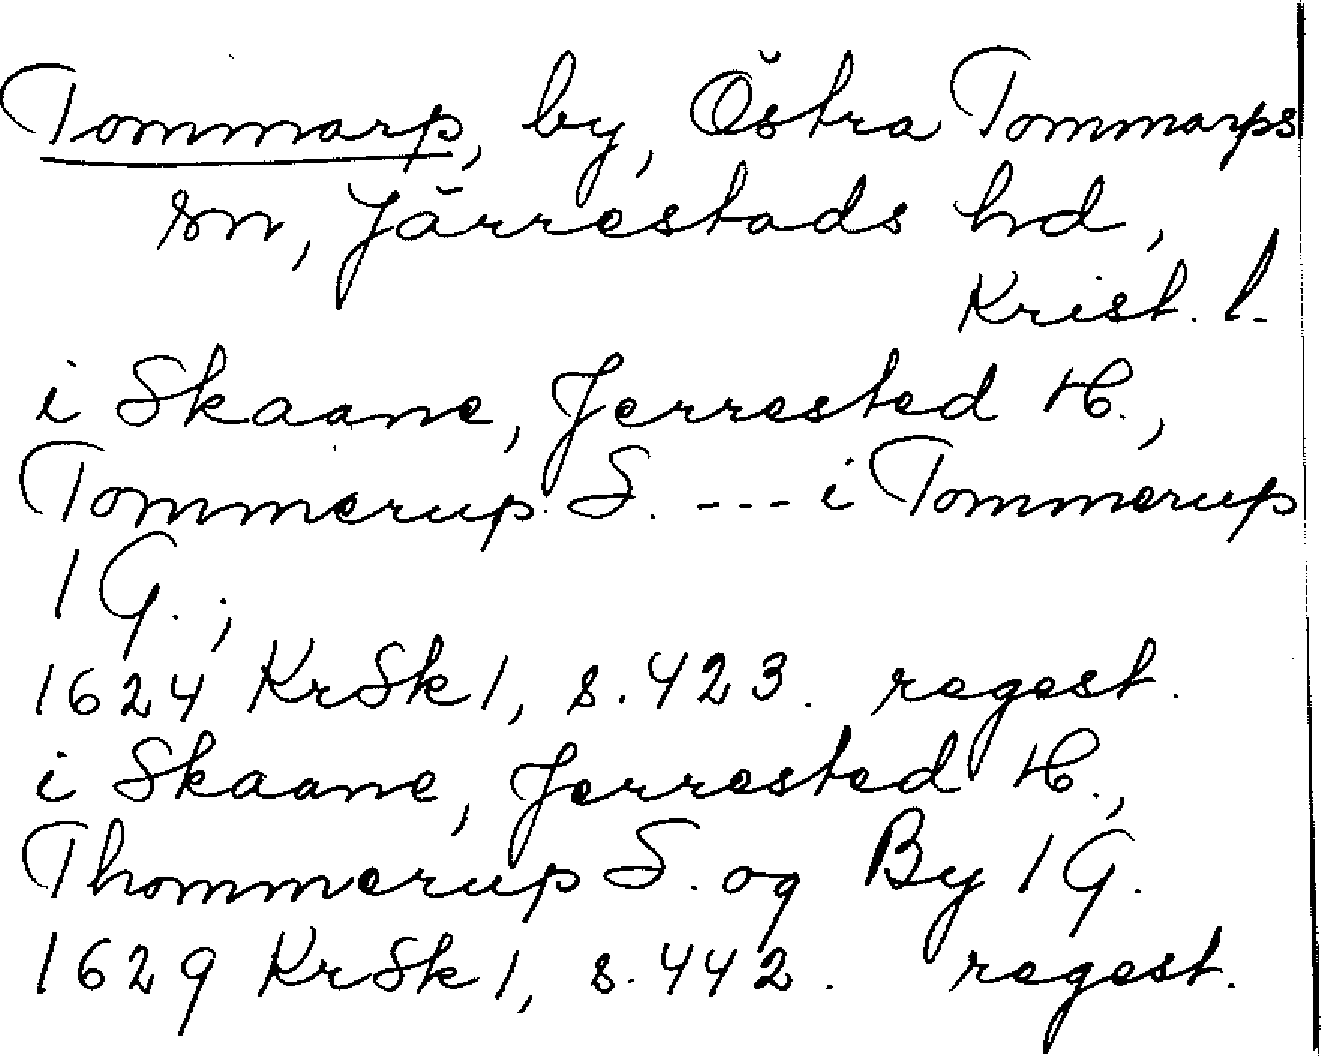 Tommarp, by, Östra Tommarps
sn, Järrestads hd,
Krist. l.
i Skaane, Jerrested H.,
Tommerup S. --- i Tommerup
1 G.;
1624 KrSk 1, s. 423. regest.
i Skaane, Jerrested H.,
Thommerup S. og By 1 G.
1629 KrSk 1, s. 442. regest.